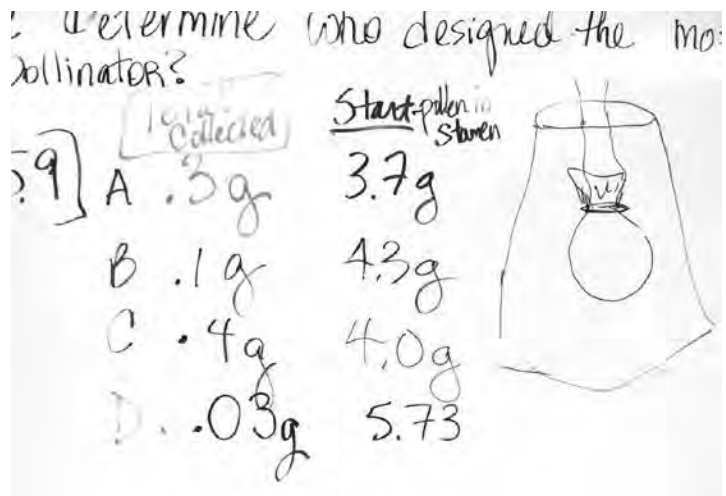 Determine who designed the
pollinator?
Collected
Start-pollen in
Stamen
A .3g 3.7g
B .1g 4.3g
C .4g 4.0g
D. .03g 5.73